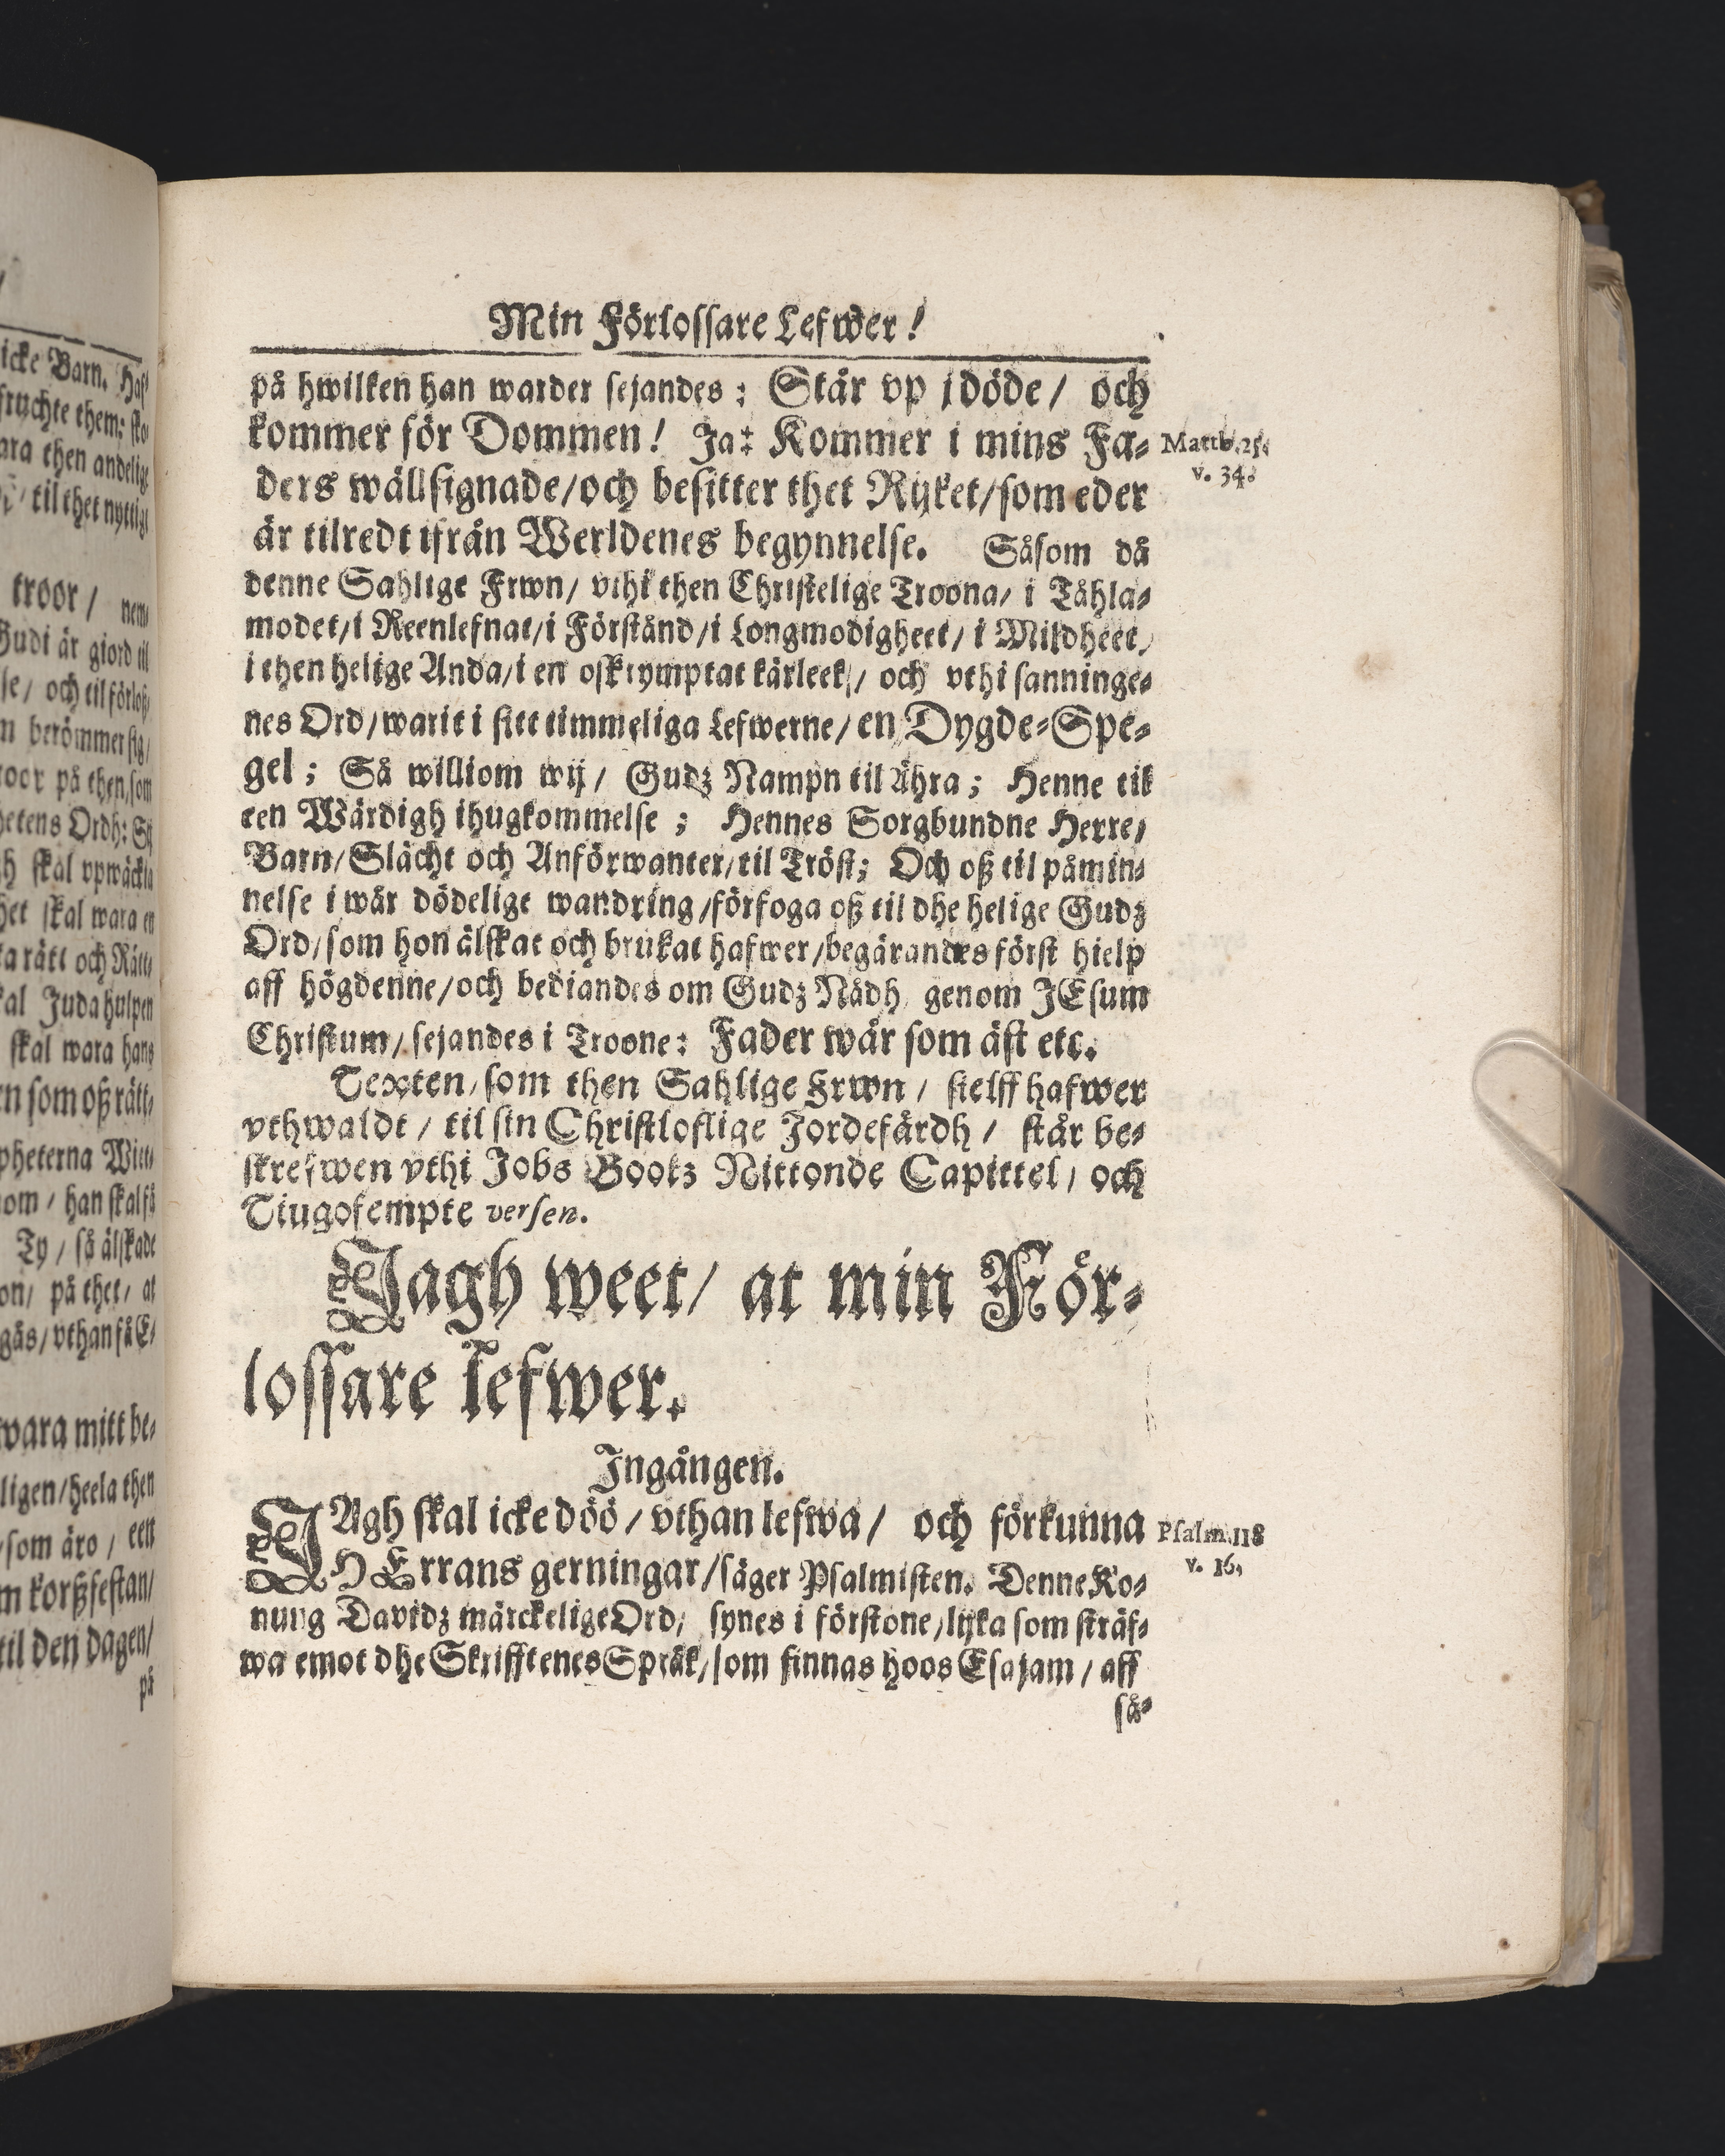 icke Barn. Haf
fruchte them: sto
ara then andelige
til thet nyttigt
troor / nem
Gudi är giord til
se / och til förloß
n berömmer sig /
roor på then, som
hetens Ordh: Sij
gh skal vpwäckia
het skal wara en
ka rätt och Rätt
kal Juda hulpen
skal wara hans
en som oß rätt-
pheterna Witt-
om / han skal få
Ty / så älskade
on / på thet / at
gås / vthan få E-
wara mitt be-
ligen / heela then
som äro / een
m korßfestan /
til den dagen /
på
Min Förlossare Lefwer!
på hwilken han warder sejandes: Står vp j döde / och
kommer för Dommen! Ja: Kommer i mins Fa-
ders wällsignade / och besitter thet Rijket / som eder
är tilredt ifrån Werldenes begynnelse. Såsom då
denne Sahlige Frwn / vthi then Christelige Troona / i Tåhla-
modet / i Reenlefnat / i Förstånd / i Longmodigheet / i Mildheet /
i then helige Anda / i en oskrymptat kärleek / och vthi sanninge-
nes Ord / warit i sitt timmeliga Lefwerne / en Dygde-Spe-
gel; Så williom wij / Gudz Nampn til Ähra; Henne til
een Wärdigh ihugkommelse; Hennes Sorgbundne Herre /
Barn / Slächt och Anförwanter / til Tröst; Och oß til påmin-
nelse i wår dödelige wandring / förfoga oß til dhe helige Gudz
Ord / som hon älskat och brukat hafwer / begärandes först hielp
aff högdenne / och bediandes om Gudz Nådh genom JEsum
Christum / sejandes i Troone: Fader wår som äst etc.
Texten / som then Sahlige Frwn / sielff hafwer
vthwaldt / til sin Christloflige Jordefärdh / står be-
skrefwen vthi Jobs Bookz Nittonde Capittel / och
Tiugofempte versen.
Jagh weet / at min För-
lossare lefwer.
Ingången.
JAgh skal icke döö / vthan lefwa / och förkunna
HErrans gerningar / säger Psalmisten. Denne Ko-
nung Davidz märckelige Ord / synes i förstone / lijka som sträf-
wa emot dhe Skrifftenes Språk / som finnas hoos Esajam / aff
så-
Matth. 25.
v. 34.
Psalm. 118
v. 16,